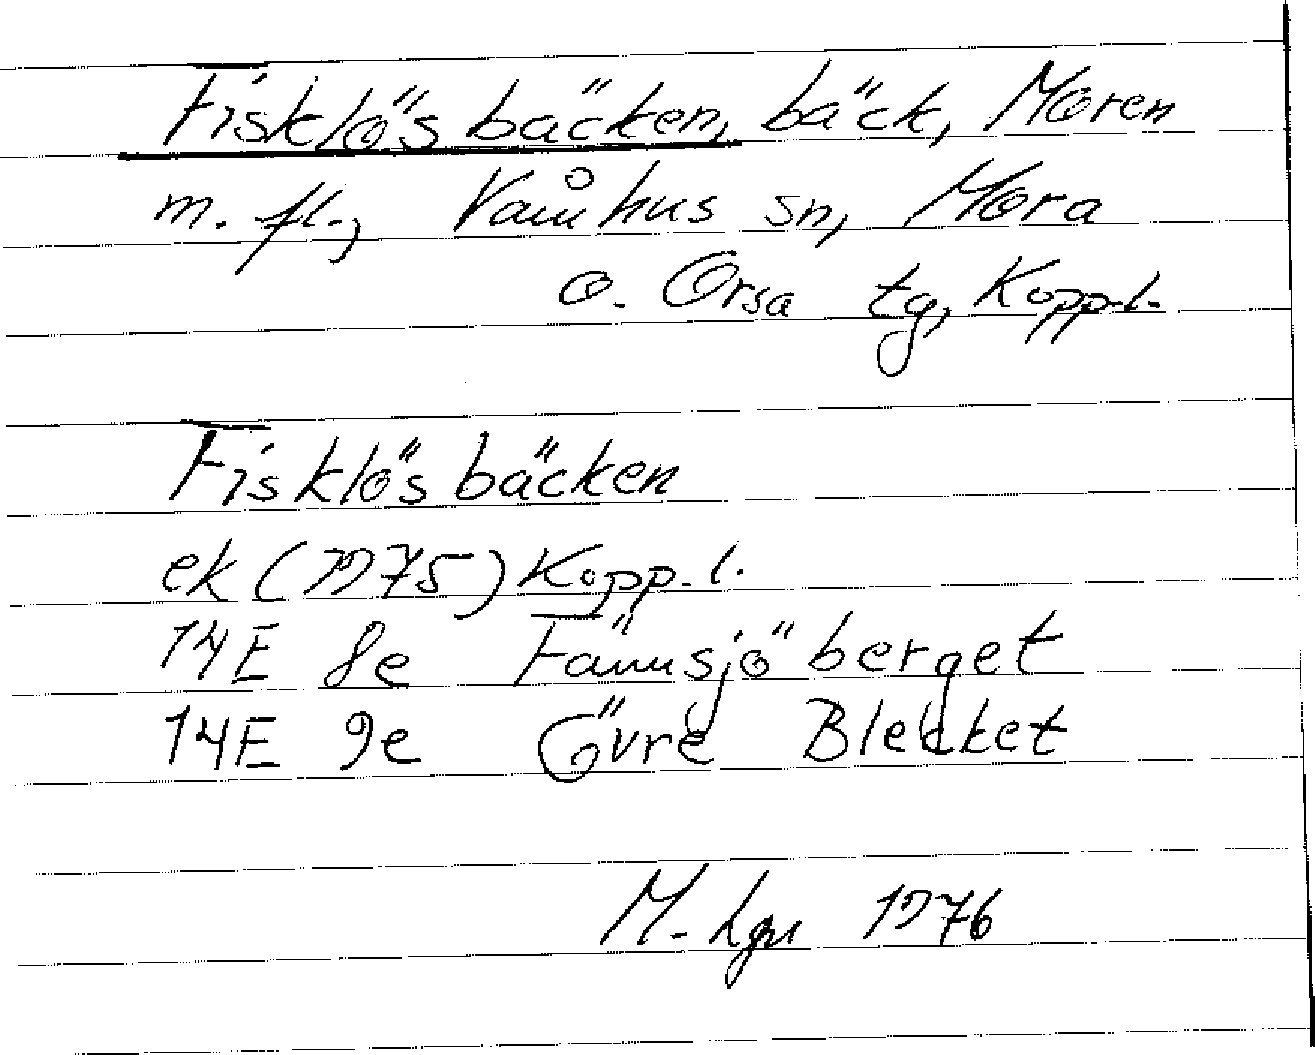 Fisklösbäcken, bäck, Moren
m. fl., Våmhus sn, Mora
o. Orsa tg, Kopp. l.
Fisklösbäcken
ek (1975) Kopp. l.
14E 8e Fämsjöberget
14E 9e Övre Blecket
M. Lgn 1976